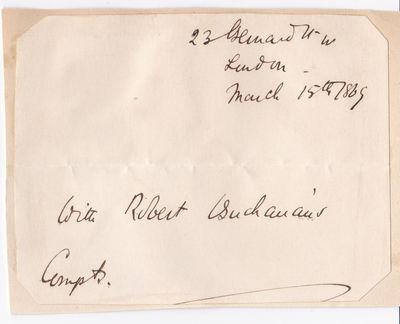 23 Bernard St W
London -
March 15th 1869
With Robert Buchanan's
Compts.